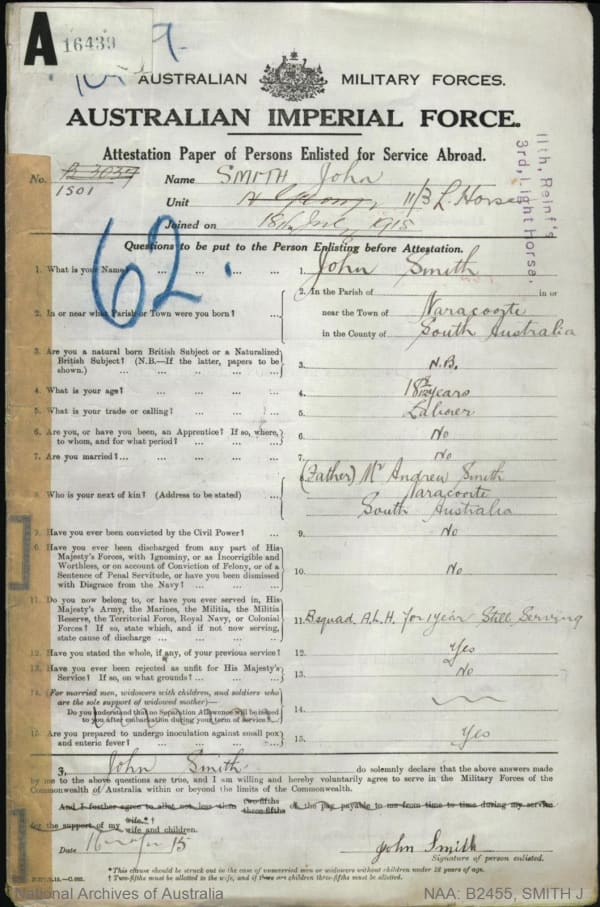 A
16439
AUSTRALIAN MILITARY FORCES.
AUSTRALIAN IMPERIAL FORCE.
Attestation Paper of Persons Enlisted for Service Abroad.
No. B 3039 Name SMITH John
1501
Unit 11/3 L. Horse
Joined on 1915
11th, Reinf's
3rd, Light Horse,
62.
Questions to be put to the Person Enlisting before Attestation.
1. What is your Name? ... ... ... ... 1. John Smith
2. In or near what Parish or Town were you born? ... 2. In the Parish of in or
near the Town of Naracoorte
in the County of South Australia
3. Are you a natural born British Subject or a Naturalized
British Subject? (N.B.—If the latter, papers to be
shown.) ... ... ... ... ... 3. N.B.
4. What is your age? ... ... ... ... 4. 18 years
5. What is your trade or calling? ... ... ... 5. Laborer
6. Are you, or have you been, an Apprentice? If so, where,
to whom, and for what period? ... ... ... 6. No
7. Are you married?... ... ... ... ... 7. No
8. Who is your next of kin? (Address to be stated) ... (Father) Mr Andrew Smith
Naracoorte
South Australia
9. Have you ever been convicted by the Civil Power? ... 9. No
10. Have you ever been discharged from any part of His
Majesty's Forces, with Ignominy, or as Incorrigible and
Worthless, or on account of Conviction of Felony, or of a
Sentence of Penal Servitude, or have you been dismissed
with Disgrace from the Navy? ... ... ... 10. No
11. Do you now belong to, or have you ever served in, His
Majesty's Army, the Marines, the Militia, the Militia
Reserve, the Territorial Force, Royal Navy, or Colonial
Forces? If so, state which, and if not now serving,
state cause of discharge ... ... ... 11. B squad A.L.H. for 1 year Still Serving
12. Have you stated the whole, if any, of your previous service? 12. Yes
13. Have you ever been rejected as unfit for His Majesty's
Service? If so, on what grounds? ... ... 13. No
14. (For married men, widowers with children, and soldiers who
are the sole support of widowed mother)—
Do you understand that no Separation Allowance will be issued
to you after embarkation during your term of service? 14.
15. Are you prepared to undergo inoculation against small pox
and enteric fever? ... ... ... ... 15. Yes
I, John Smith do solemnly declare that the above answers made
by me to the above questions are true, and I am willing and hereby voluntarily agree to serve in the Military Forces of the
Commonwealth of Australia within or beyond the limits of the Commonwealth.
And I further agree to allot not less than two-fifths three-fifths of the pay payable to me from time to time during my service
for the support of my wife.*† wife and children.
Date 16 15 John Smith
Signature of person enlisted.
*This clause should be struck out in the case of unmarried men or widowers without children under 18 years of age.
† Two-fifths must be allotted to the wife, and if there are children three-fifths must be allotted.
National Archives of Australia NAA: B2455, SMITH J